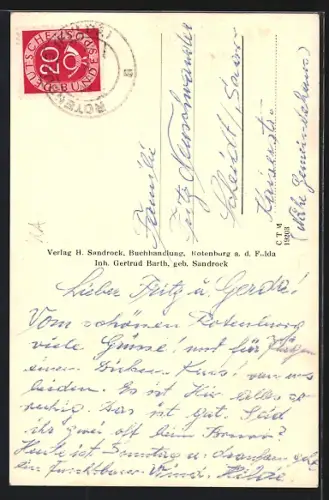 DEUTSCHE BUNDESPOST
20
ROTENBURG
Familie
Fritz Neuschwander
Scheidt/Saar
Kaiserstr.
(Nähe Gemeindehaus)
C T M
Verlag H. Sandrock, Buchhandlung, Rotenburg a. d. Fulda
Inh. Gertrud Barth, geb. Sandrock
Lieber Fritz u. Gerda!
Vom schönen Rotenburg
viele Grüsse! und für
einen dicken Kuss! von uns
beiden. Es ist hier alles
ruhig. Das ist gut. Seid
ihr zwei oft beim
Heute ist Sonntag u. draussen geht
ein furchtbarer Wind. Hilde